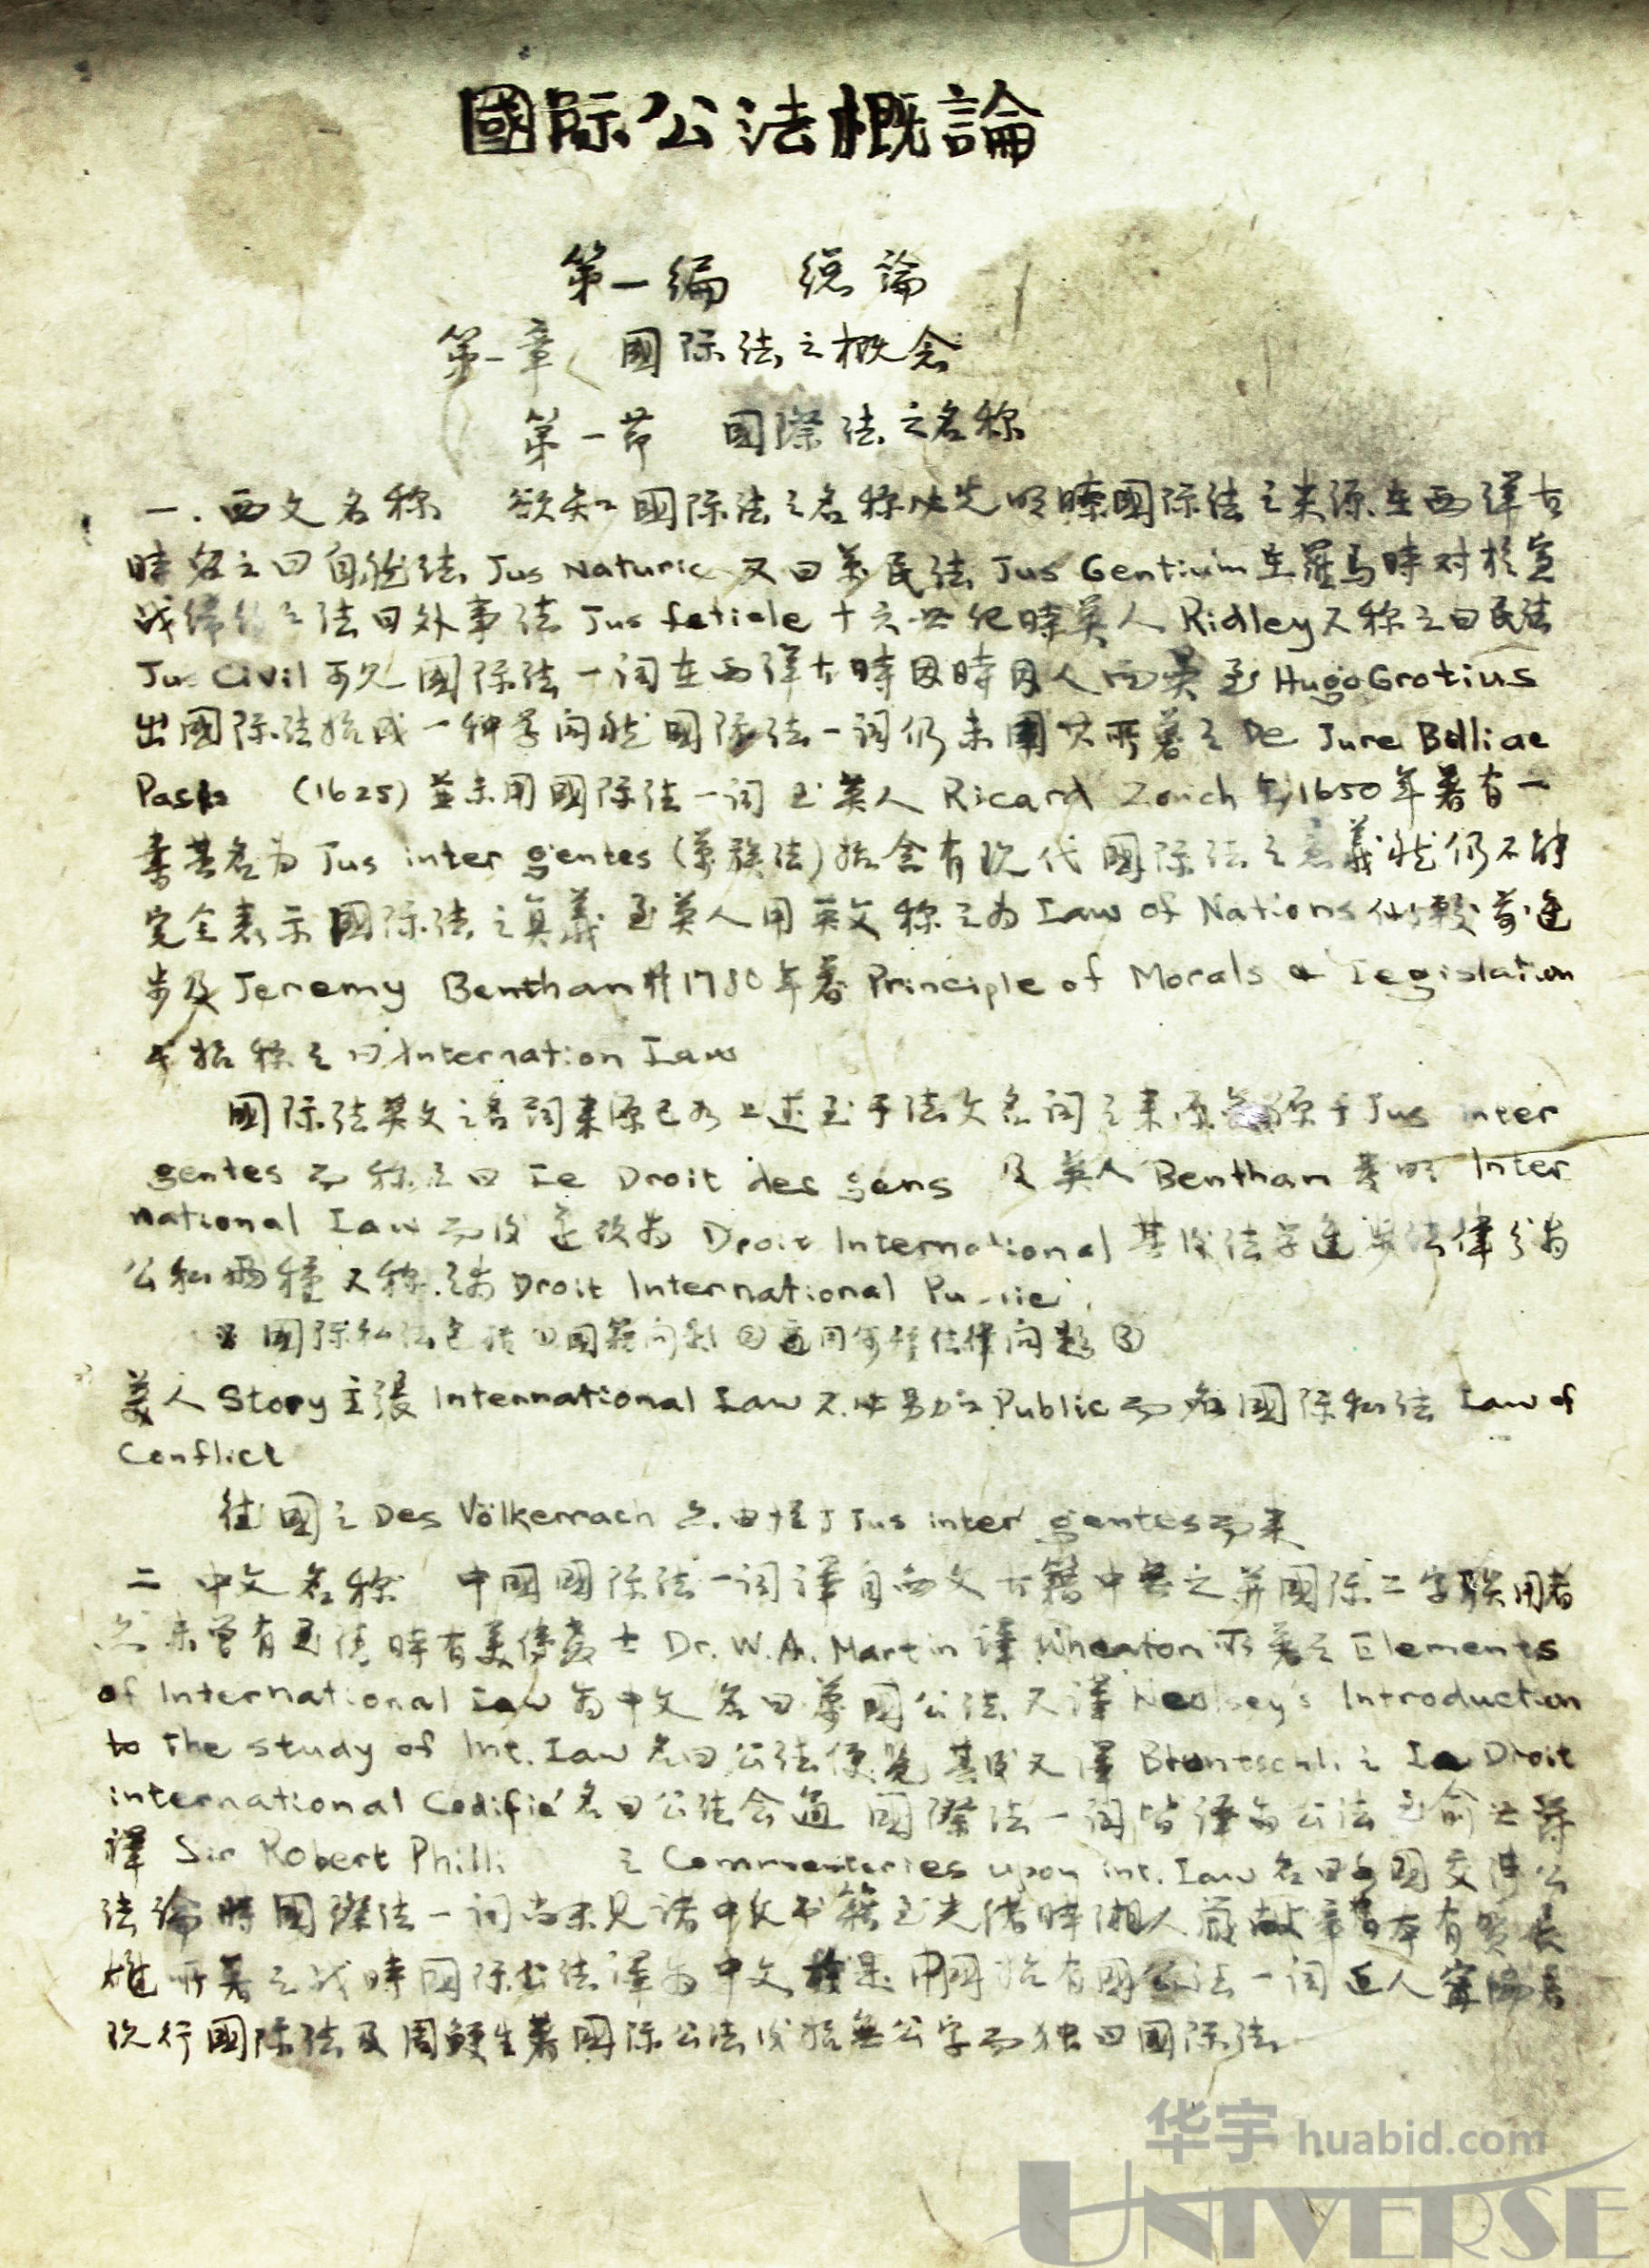 國际公法概論
第一編 總論
第一章 國际法之概念
第一节 国際法之名称
一.西文名称 欲知國际法之名称必先明瞭國际法之来源在西洋古
時名之曰自然法 Jus Naturic 又曰萬民法 Jus Gentium 在羅馬時对於宣
战缔约之法曰外事法 Jus fetiale 十六世纪時英人 Ridley又称之曰民法
Jus Civil 可见國际法一词在西洋古時因時因人而異至HugoGrotius
出國际法始成一种学问然國际法一词仍未用其所著之 De Jure Belliae
(1625) 並未用國际法一词至英人 Ricard Zouch 在1650年著有一
書其名为 Jus inter gentes (萬族法)始含有现代國际法之意義然仍不能
完全表示國际法之真義至英人用英文称之为 Iaw of Nations似較前進
步及 Jeremy Bentham於1780年著 Principle of Morals & Iegislation
始称之曰Internation Iaw
國际法英文之名词来源已如上述至于法文名词之来原亦源于Jus inter
gentes 而称之曰 Ie Droit des gens 及英人 Bentham 發明 Inter
national Iaw 而后遂改为 Droit International 其后法学進步法律分为
公私兩種又称之为 Droit International
國际私法包括①国籍问题②适用何种法律问题③
美人 Story 主張 International Iaw 不必另加 Public 而名國际私法 Iaw of
Conflict
國之 Des Völkerrach 亦由於 Jus inter gentes而来
二 中文名称 中國國际法一词譯自西文古籍中無之並國际二字联用者
亦未曾有至清時有美傳教士 Dr. W.A. Martin 譯 Wheaton 所著之 Elements
of International Iaw 为中文名曰萬國公法又譯 Introduction
to The study of Int. Iaw 名曰公法便览其后又譯 Bluntschli 之 Ie Droit
international Codifié 名曰公法会通 國際法一词皆译为公法至俞世爵
譯 Sir Robert Philli 之 Commentaries upon int. Iaw 名曰各國交涉公
法論時國際法一词尚未见諸中文书籍至光绪時湘人 日本有賀長
雄所著之战時國际公法译为中文於是中國始有國际法一词近人寗協万
现行國际法及周鲠生著國际公法后始無公字而独曰國际法
华宇 huabid.com
UNIVERSE